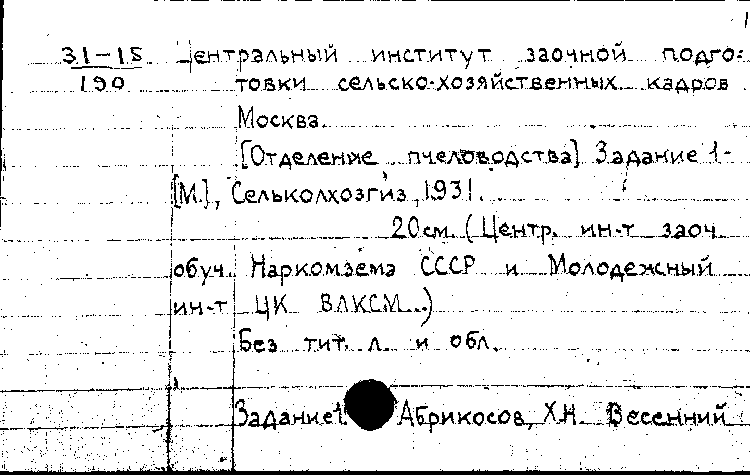 31-15 Центральный институт заочной подго-
190 товки сельско-хозяйственных кадров
Москва.
[Отделение пчеловодства] Задание 1-
[М.], Сельколхозгиз, 1931.
20см. (Центр. ин-т заоч.
обуч. Наркомзема СССР и Молодежный
ин-т ЦК ВЛКСМ..)
Без тит. л. и обл.
Задание 1. Абрикосов, Х.Н. Весенний